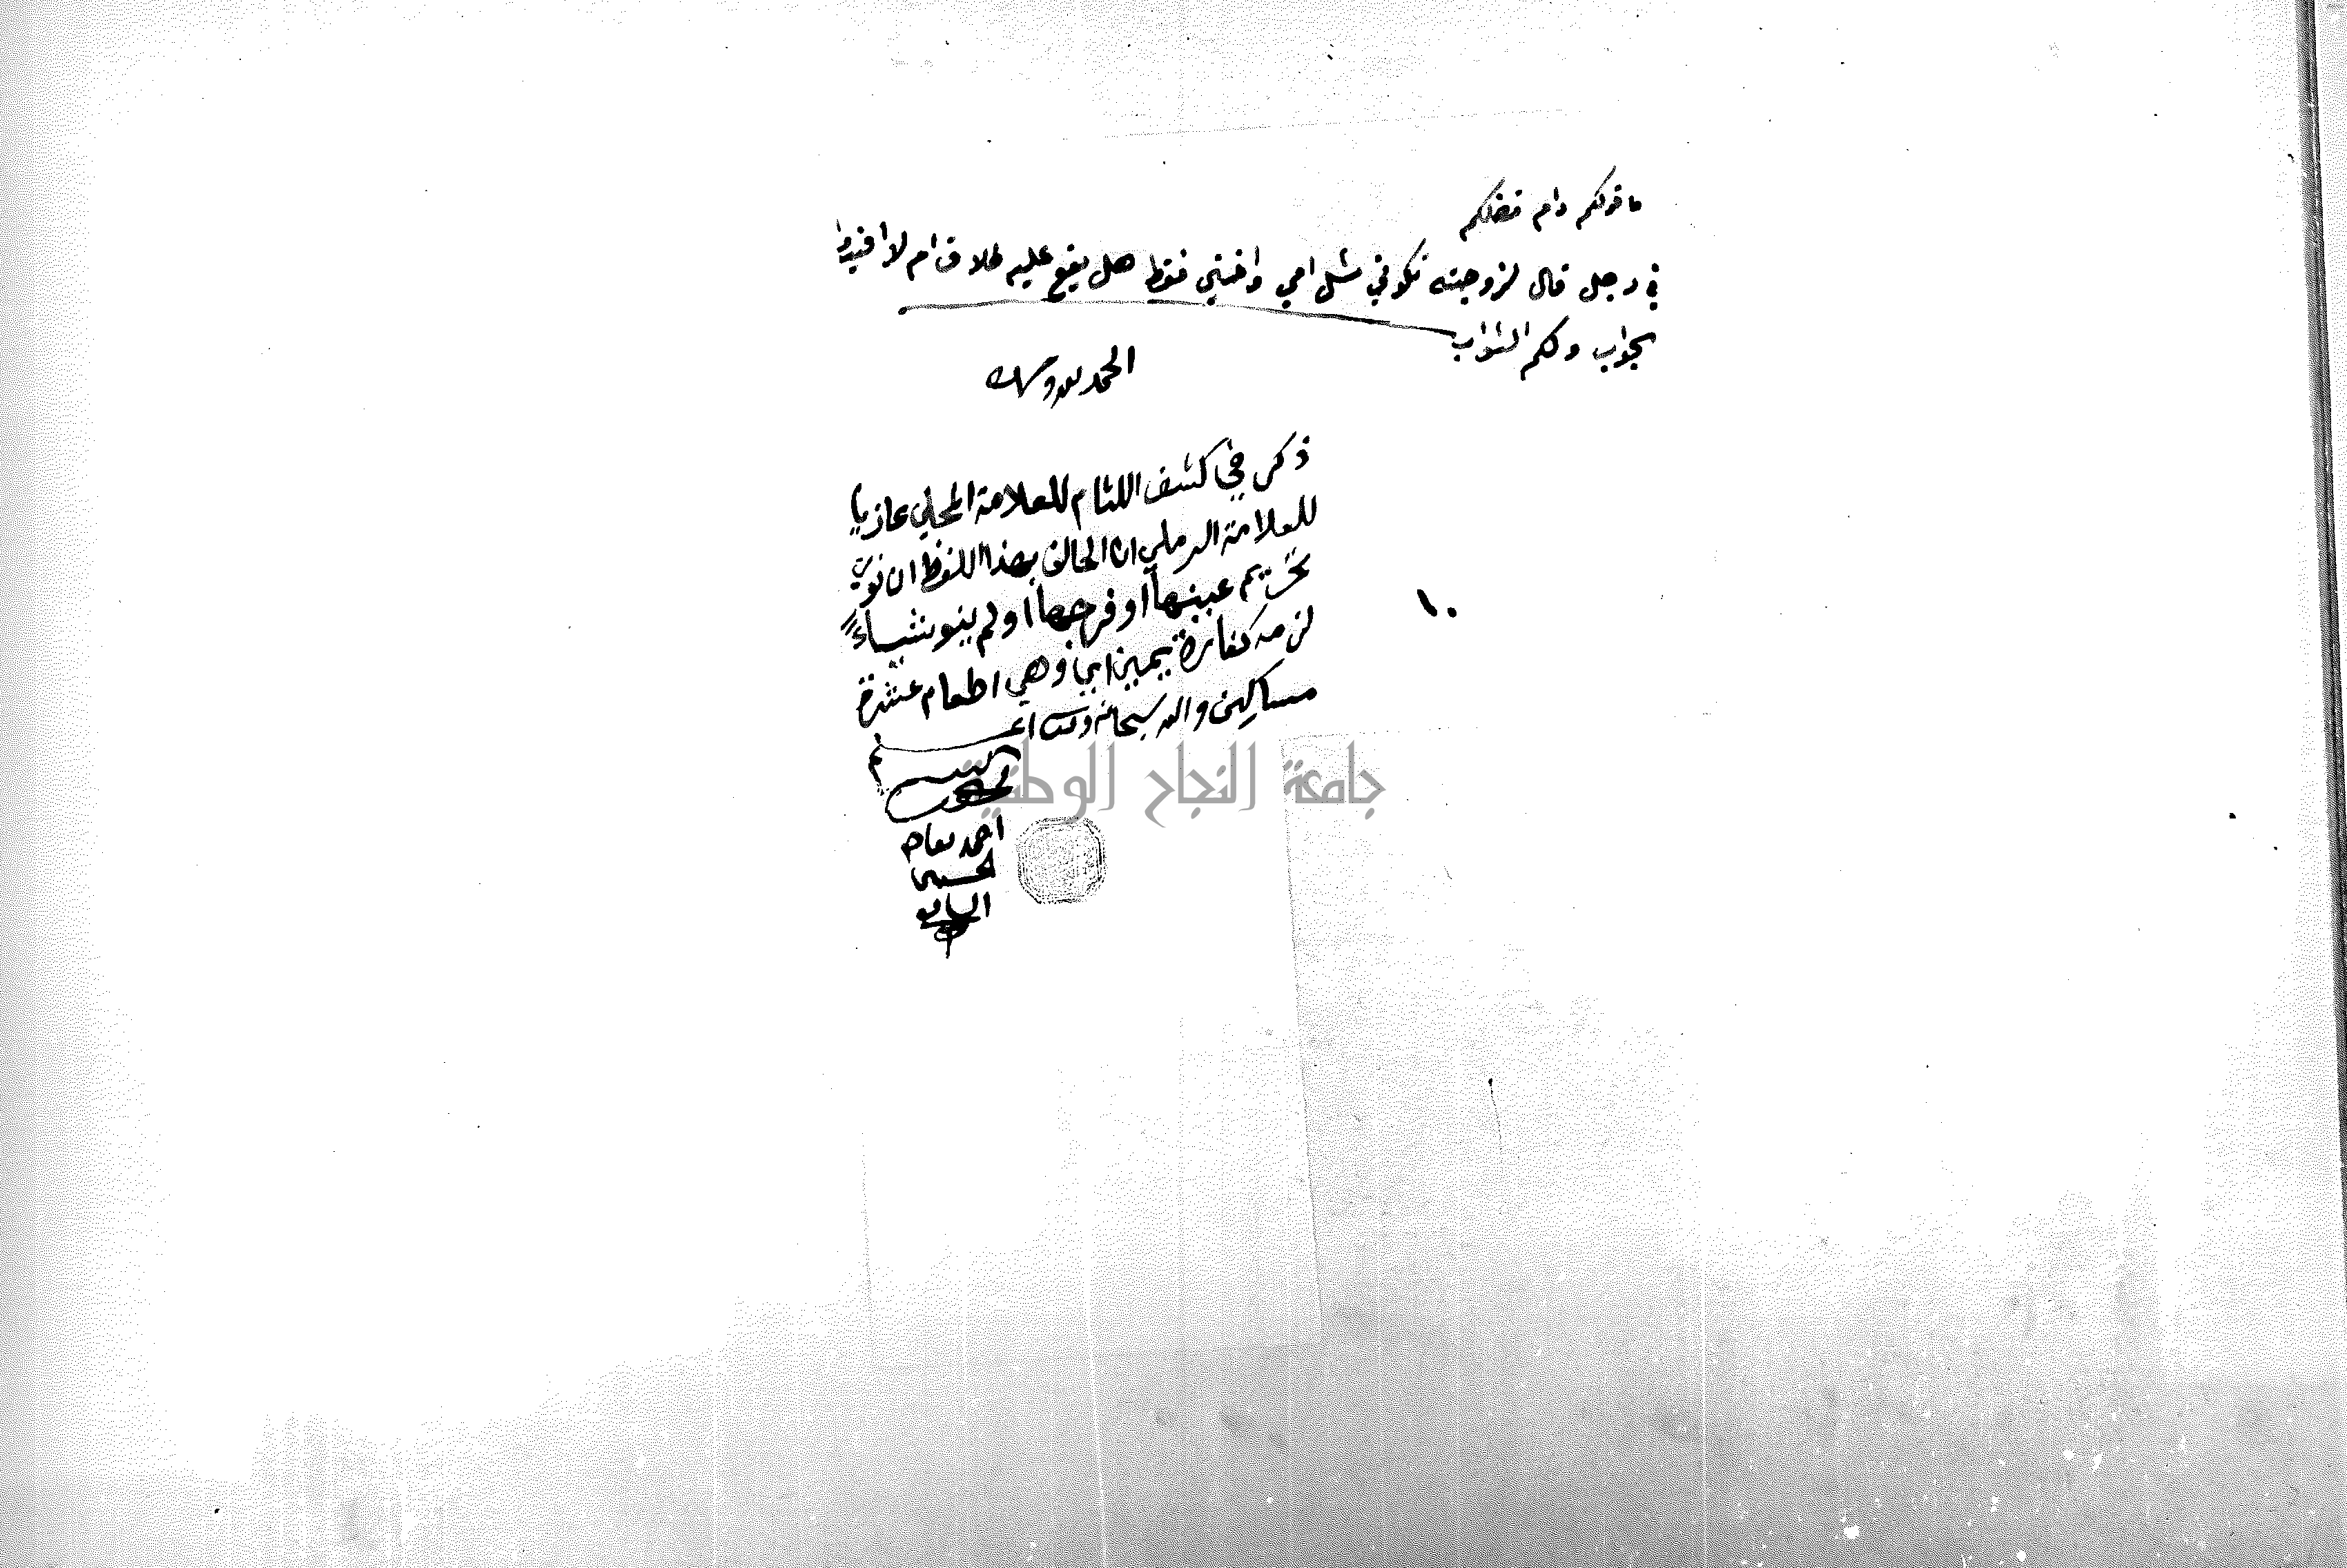 ما قولكم دام فضلكم
في رجل قال لزوجته تكوني مثل امي واختي فقط هل يقع عليه طلاق ام لا افيدوا
بجواب ولكم الثواب
الحمد لله وحده
ذكر في كشف اللثام للعلامة المحلي عازيا
للعلامة الرملي ان الحالف بهذا اللفظ ان نوى
تحريم عينها او فرجها او لم ينو شيباءً
لزمه كفارة يمين اي وهي اطعام عشرة
مساكين والله سبحانه وتعالى اعلم
احمد
الحسيني
جامعة النجاح الوطنية
١٠